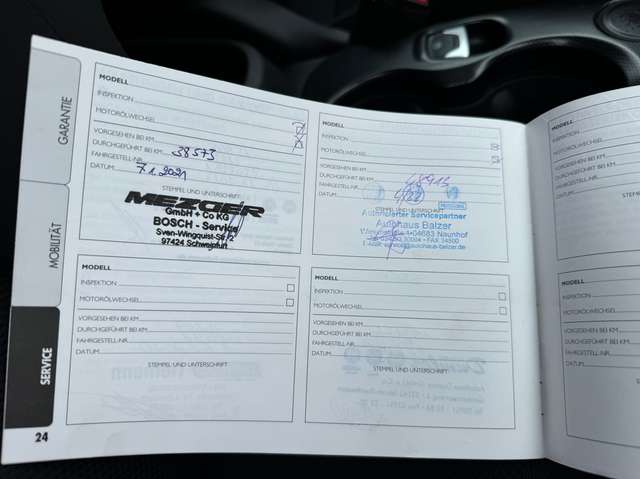 GARANTIE
MOBILITÄT
SERVICE
24
MODELL
INSPEKTION
MOTORÖLWECHSEL
VORGESEHEN BEI KM
DURCHGEFÜHRT BEI KM 38573
FAHRGESTELL-NR.
DATUM 7.1.2021
STEMPEL UND UNTERSCHRIFT
MEZGER
GmbH + Co KG
BOSCH - Service
Sven-Wingquist-Str. 2
97424 Schweinfurt
MODELL
INSPEKTION
MOTORÖLWECHSEL
VORGESEHEN BEI KM
DURCHGEFÜHRT BEI KM
FAHRGESTELL-NR.
DATUM
STEMPEL UND UNTERSCHRIFT
Autorisierter Servicepartner
Autohaus Balzer
04683 Naunhof
MODELL
INSPEKTION
MOTORÖLWECHSEL
VORGESEHEN BEI KM
DURCHGEFÜHRT BEI KM
FAHRGESTELL-NR.
DATUM
STEMPEL UND UNTERSCHRIFT
MODELL
INSPEKTION
MOTORÖLWECHSEL
VORGESEHEN BEI KM
DURCHGEFÜHRT BEI KM
FAHRGESTELL-NR.
DATUM
STEMPEL UND UNTERSCHRIFT
MODELL
INSPEKTION
MOTORÖLWECHSEL
VORGESEHEN BEI KM
DURCHGEFÜHRT BEI KM
FAHRGESTELL-NR.
DATUM
MODELL
INSPEKTION
MOTORÖLWECHSEL
VORGESEHEN BEI KM
DURCHGEFÜHRT BEI KM
FAHRGESTELL-NR.
DATUM